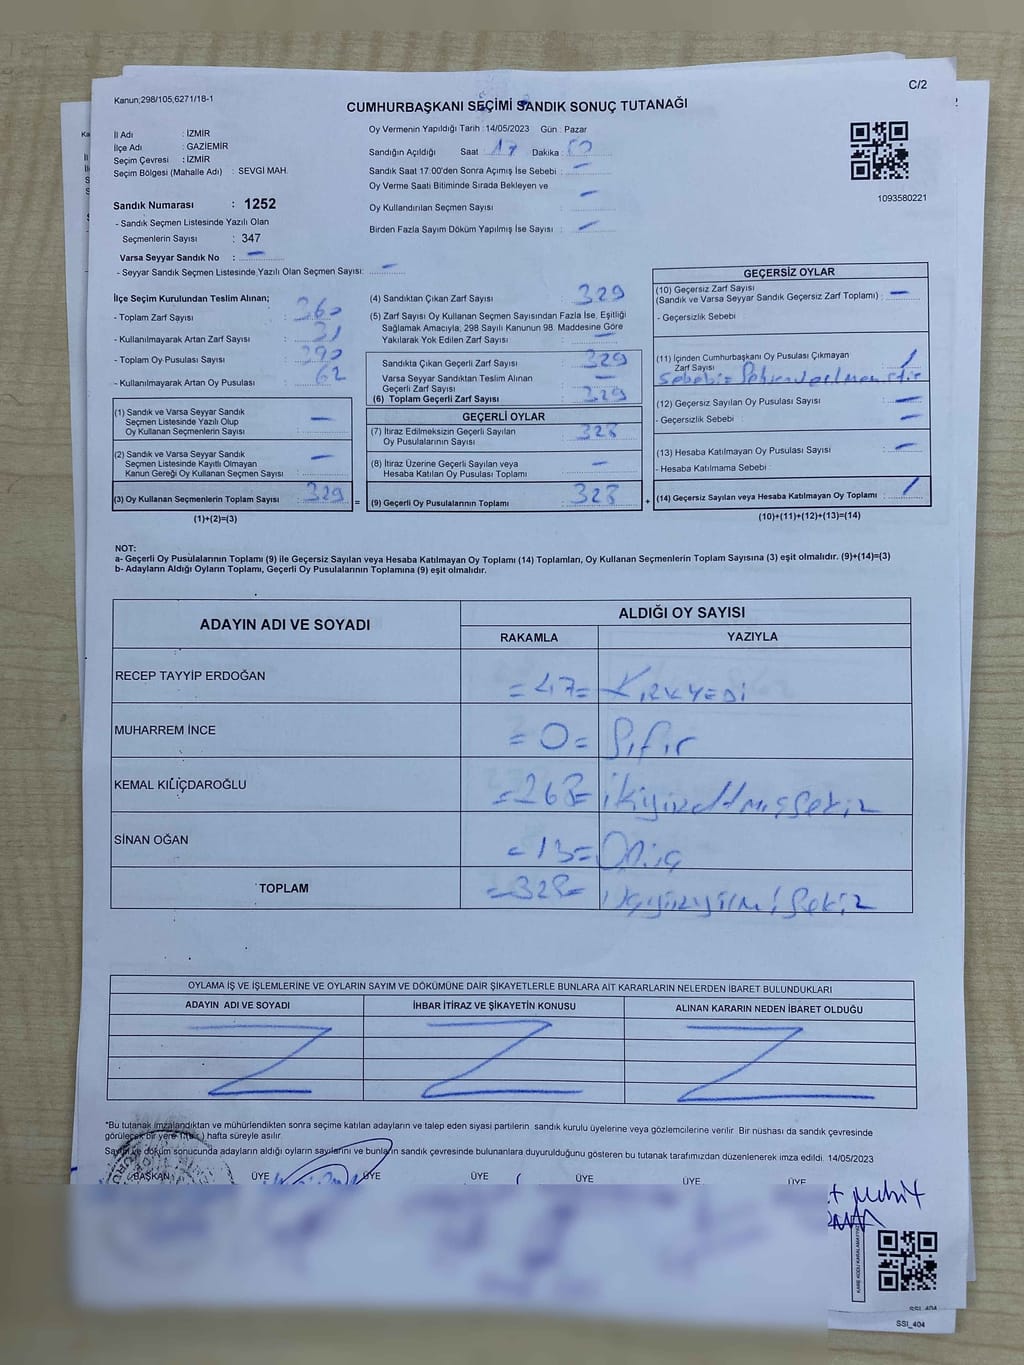 C/2
Kanun;298/105,6271/18-1
CUMHURBAŞKANI SEÇİMİ SANDIK SONUÇ TUTANAĞI
İl Adı : İZMİR
İlçe Adı : GAZİEMİR
Seçim Çevresi : İZMİR
Seçim Bölgesi (Mahalle Adı) : SEVGİ MAH.
Sandık Numarası : 1252
- Sandık Seçmen Listesinde Yazılı Olan
Seçmenlerin Sayısı : 347
Varsa Seyyar Sandık No : —
- Seyyar Sandık Seçmen Listesinde Yazılı Olan Seçmen Sayısı: —
Oy Vermenin Yapıldığı Tarih : 14/05/2023 Gün : Pazar
Sandığın Açıldığı Saat : 17 Dakika :
Sandık Saat 17:00'den Sonra Açımış İse Sebebi : —
Oy Verme Saati Bitiminde Sırada Bekleyen ve
Oy Kullandırılan Seçmen Sayısı : —
Birden Fazla Sayım Döküm Yapılmış İse Sayısı : —
1093580221
İlçe Seçim Kurulundan Teslim Alınan;
- Toplam Zarf Sayısı : 360
- Kullanılmayarak Artan Zarf Sayısı : 31
- Toplam Oy Pusulası Sayısı : 390
- Kullanılmayarak Artan Oy Pusulası : 62
(1) Sandık ve Varsa Seyyar Sandık
Seçmen Listesinde Yazılı Olup
Oy Kullanan Seçmenlerin Sayısı : —
(2) Sandık ve Varsa Seyyar Sandık
Seçmen Listesinde Kayıtlı Olmayan
Kanun Gereği Oy Kullanan Seçmen Sayısı : —
(3) Oy Kullanan Seçmenlerin Toplam Sayısı : 329
(1)+(2)=(3)
(4) Sandıktan Çıkan Zarf Sayısı : 329
(5) Zarf Sayısı Oy Kullanan Seçmen Sayısından Fazla İse, Eşitliği
Sağlamak Amacıyla, 298 Sayılı Kanunun 98. Maddesine Göre
Yakılarak Yok Edilen Zarf Sayısı : —
Sandıkta Çıkan Geçerli Zarf Sayısı : 329
Varsa Seyyar Sandıktan Teslim Alınan
Geçerli Zarf Sayısı : —
(6) Toplam Geçerli Zarf Sayısı : 329
GEÇERLİ OYLAR
(7) İtiraz Edilmeksizin Geçerli Sayılan
Oy Pusulalarının Sayısı : 328
(8) İtiraz Üzerine Geçerli Sayılan veya
Hesaba Katılan Oy Pusulası Toplamı : —
= (9) Geçerli Oy Pusulalarının Toplamı : 328
GEÇERSİZ OYLAR
(10) Geçersiz Zarf Sayısı
(Sandık ve Varsa Seyyar Sandık Geçersiz Zarf Toplamı) : —
- Geçersizlik Sebebi
(11) İçinden Cumhurbaşkanı Oy Pusulası Çıkmayan
Zarf Sayısı : 1
Sebebi:
(12) Geçersiz Sayılan Oy Pusulası Sayısı : —
- Geçersizlik Sebebi : —
(13) Hesaba Katılmayan Oy Pusulası Sayısı : —
- Hesaba Katılmama Sebebi :
+ (14) Geçersiz Sayılan veya Hesaba Katılmayan Oy Toplamı : 1
(10)+(11)+(12)+(13)=(14)
NOT:
a- Geçerli Oy Pusulalarının Toplamı (9) ile Geçersiz Sayılan veya Hesaba Katılmayan Oy Toplamı (14) Toplamları, Oy Kullanan Seçmenlerin Toplam Sayısına (3) eşit olmalıdır. (9)+(14)=(3)
b- Adayların Aldığı Oyların Toplamı, Geçerli Oy Pusulalarının Toplamına (9) eşit olmalıdır.
ADAYIN ADI VE SOYADI ALDIĞI OY SAYISI
RAKAMLA YAZIYLA
RECEP TAYYİP ERDOĞAN =47= KIRKYEDİ
MUHARREM İNCE =0= Sıfır
KEMAL KILIÇDAROĞLU =268= ikiyüzAltmışSekiz
SİNAN OĞAN =13= Onüç
TOPLAM =328= Üçyüzyirmisekiz
OYLAMA İŞ VE İŞLEMLERİNE VE OYLARIN SAYIM VE DÖKÜMÜNE DAİR ŞİKAYETLERLE BUNLARA AİT KARARLARIN NELERDEN İBARET BULUNDUKLARI
ADAYIN ADI VE SOYADI İHBAR İTİRAZ VE ŞİKAYETİN KONUSU ALINAN KARARIN NEDEN İBARET OLDUĞU
*Bu tutanak imzalandıktan ve mühürlendikten sonra seçime katılan adayların ve talep eden siyasi partilerin sandık kurulu üyelerine veya gözlemcilerine verilir. Bir nüshası da sandık çevresinde
görülecek bir yere 1(bir) hafta süreyle asılır.
Sayım ve döküm sonucunda adayların aldığı oyların sayılarını ve bunların sandık çevresinde bulunanlara duyurulduğunu gösteren bu tutanak tarafımızdan düzenlenerek imza edildi. 14/05/2023
BAŞKAN ÜYE ÜYE ÜYE ÜYE ÜYE ÜYE
SSI_404
SSI_404